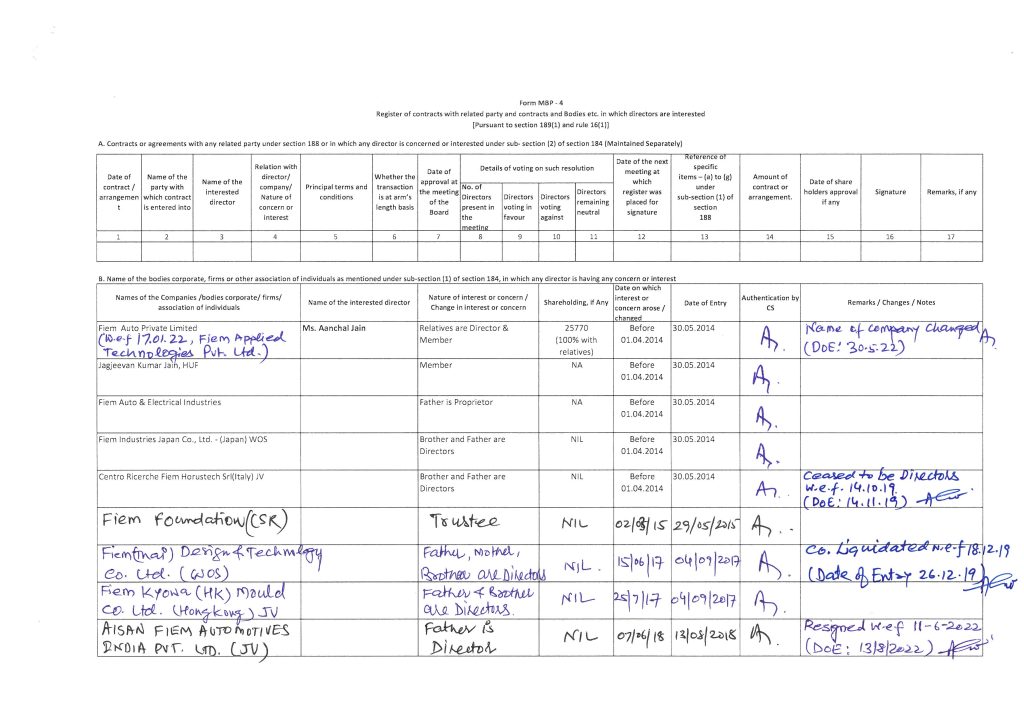 Form MBP - 4
Register of contracts with related party and contracts and Bodies etc. in which directors are interested
[Pursuant to section 189(1) and rule 16(1)]
A. Contracts or agreements with any related party under section 188 or in which any director is concerned or interested under sub- section (2) of section 184 (Maintained Separately)
Date of contract / arrangement
Name of the party with which contract is entered into
Name of the interested director
Relation with director/ company/ Nature of concern or interest
Principal terms and conditions
Whether the transaction is at arm's length basis
Date of approval at the meeting of the Board
Details of voting on such resolution
No. of Directors present in the meeting
Directors voting in favour
Directors voting against
Directors remaining neutral
Date of the next meeting at which register was placed for signature
Reference of specific items – (a) to (g) under sub-section (1) of section 188
Amount of contract or arrangement.
Date of share holders approval if any
Signature
Remarks, if any
1 2 3 4 5 6 7 8 9 10 11 12 13 14 15 16 17
B. Name of the bodies corporate, firms or other association of individuals as mentioned under sub-section (1) of section 184, in which any director is having any concern or interest
Names of the Companies /bodies corporate/ firms/ association of individuals
Name of the interested director
Nature of interest or concern / Change in interest or concern
Shareholding, if Any
Date on which interest or concern arose / changed
Date of Entry
Authentication by CS
Remarks / Changes / Notes
Fiem Auto Private Limited
(w.e.f 17.01.22, Fiem Applied
Technologies Pvt. Ltd.)
Ms. Aanchal Jain
Relatives are Director &
Member
25770
(100% with
relatives)
Before
01.04.2014
30.05.2014
Name of company changed
(DoE: 30.5.22)
Jagjeevan Kumar Jain, HUF
Member
NA
Before
01.04.2014
30.05.2014
Fiem Auto & Electrical Industries
Father is Proprietor
NA
Before
01.04.2014
30.05.2014
Fiem Industries Japan Co., Ltd. - (Japan) WOS
Brother and Father are
Directors
NIL
Before
01.04.2014
30.05.2014
Centro Ricerche Fiem Horustech Srl(Italy) JV
Brother and Father are
Directors
NIL
Before
01.04.2014
30.05.2014
Ceased to be Directors
w.e.f. 14.10.19
(DoE: 14.11.19)
Fiem Foundation (CSR)
Trustee
NIL
29/05/2015
Design & Technology
Co. Ltd. (WOS)
Father, Mother,
Brother are Directors
NIL.
15/06/17
04/09/2017
Co. Liquidated w.e.f 18.12.19
(Date of Entry 26.12.19)
Fiem Kyowa (HK) Mould
Co. Ltd. (Hongkong) JV
Father & Brother
are Directors.
NIL
25/7/17
04/09/2017
AISAN FIEM AUTOMOTIVES
INDIA PVT. LTD. (JV)
Father is
Director
NIL
07/06/18
13/08/2018
Resigned w.e.f 11-6-2022
(DoE: 13/8/2022)